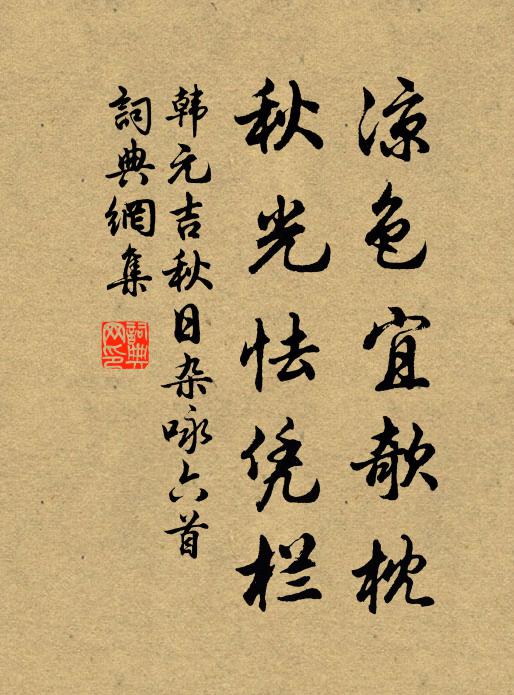 凉色宜欹枕
秋光怯凭栏
韩元吉秋日杂咏六首
詞典網集
詞典网印